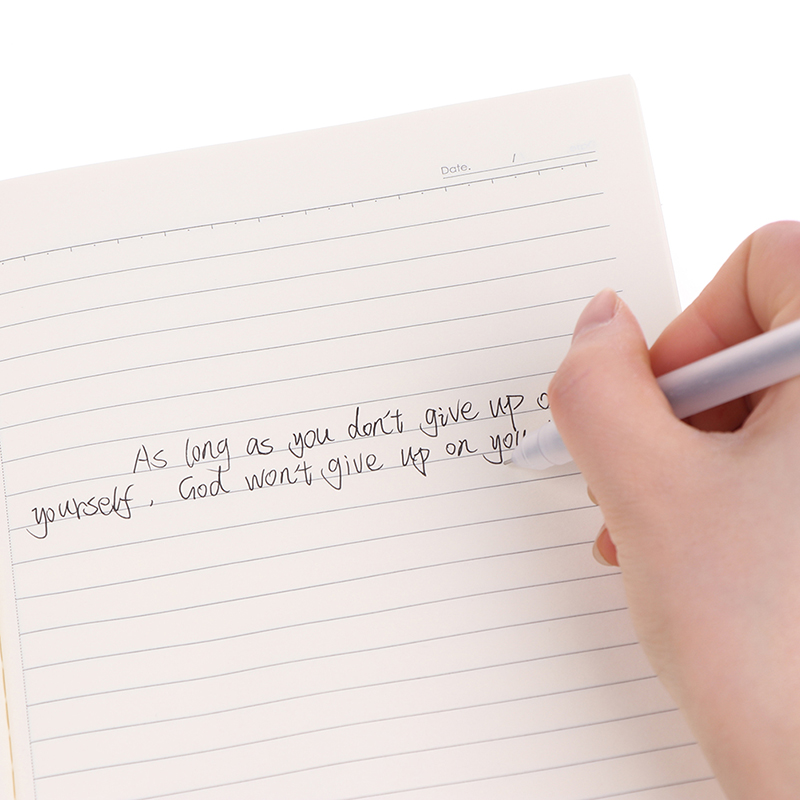 Date. /
As long as you don't give up
yourself, God won't give up on you